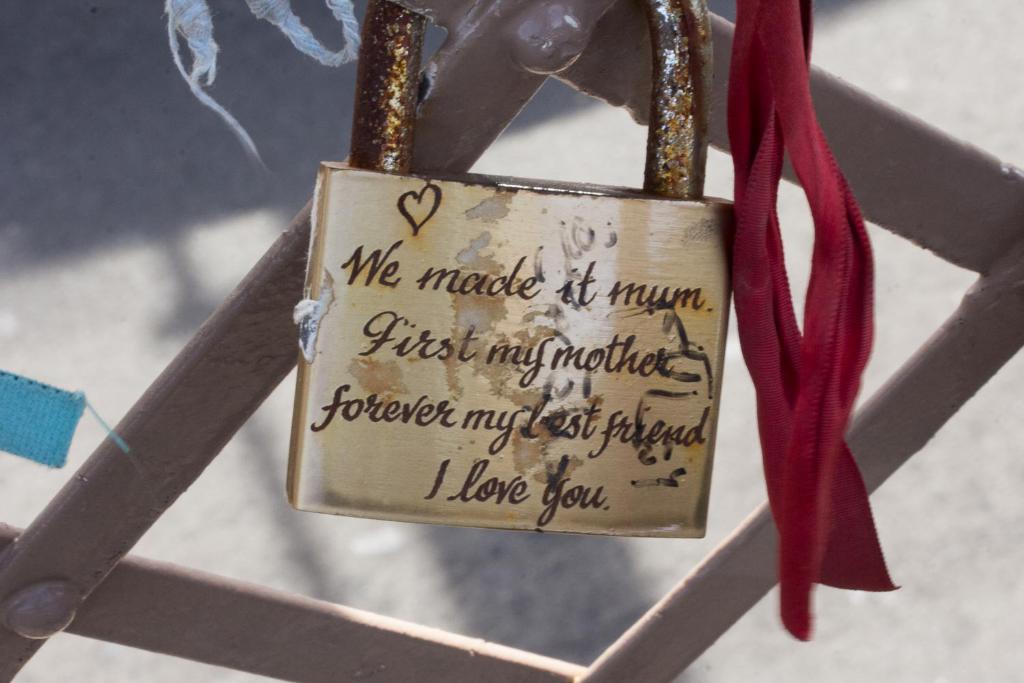 We made it mum.
First my mother
forever my best friend
I love you.